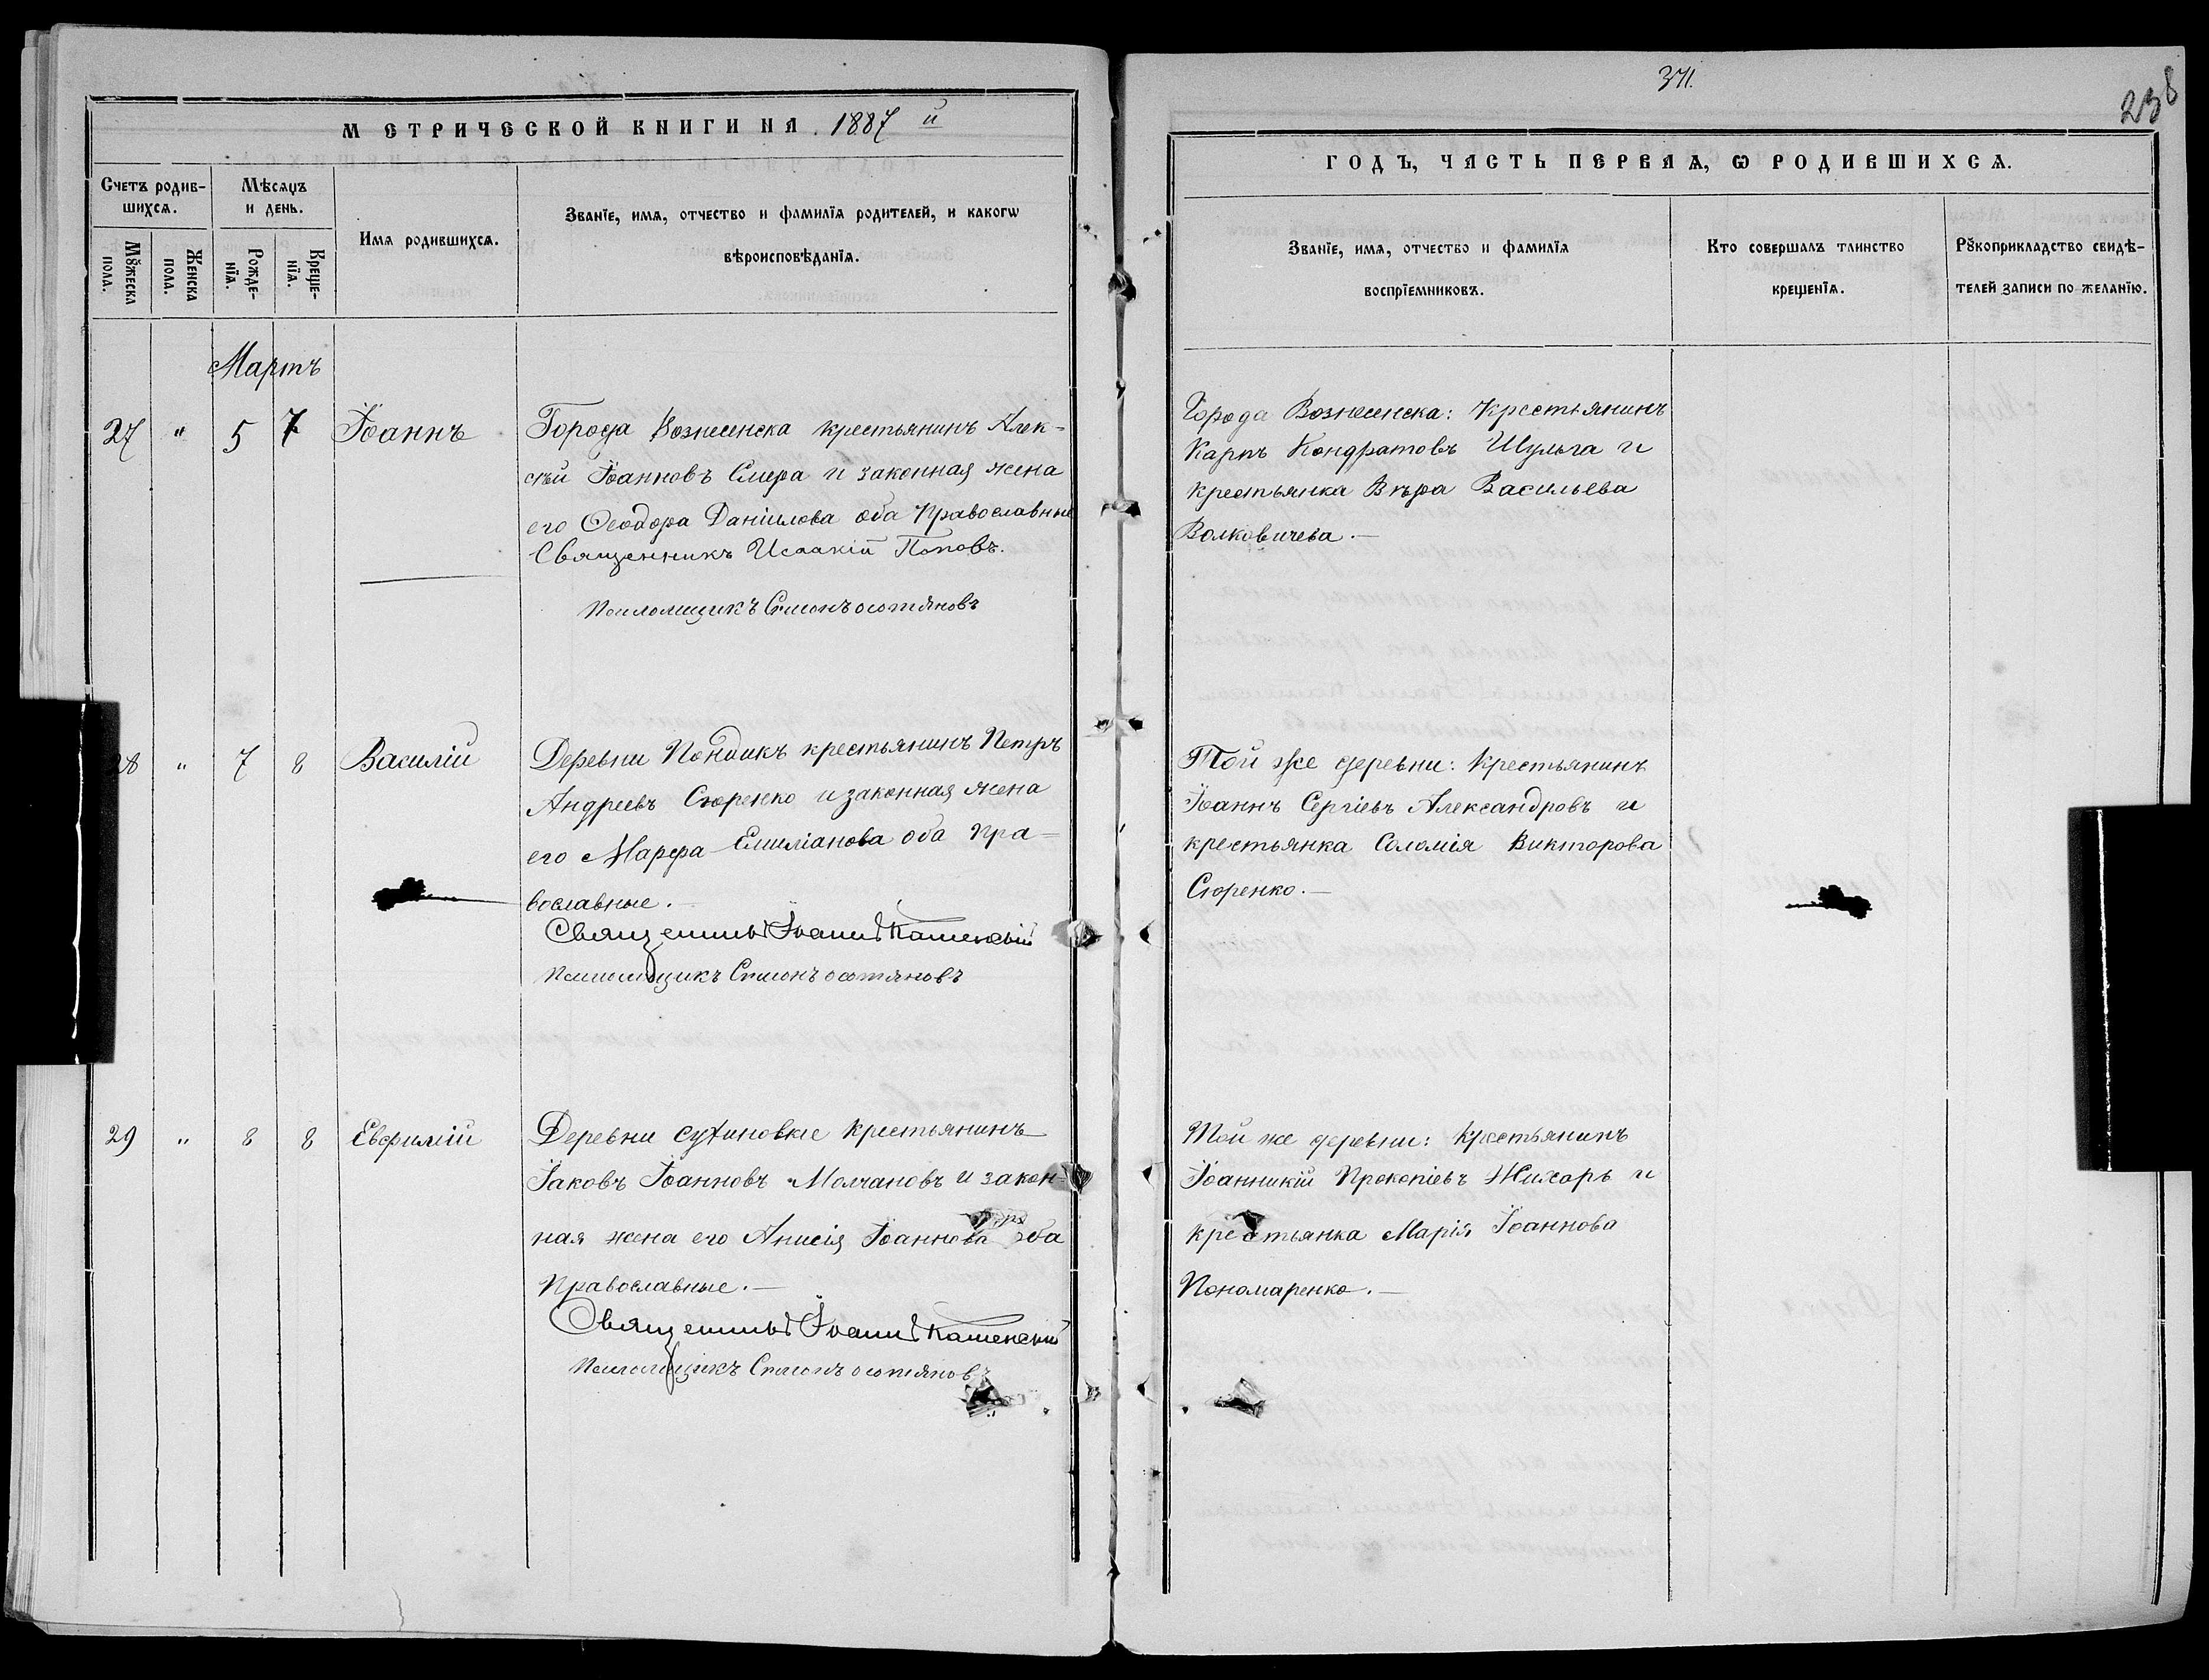 МЕТРИЧЕСКОЙ КНИГИ НА 1887 й
Счетъ родив-
шихся.
Мѣсяцъ
и день.
Имя родившихся.
Званїе, имя, отчество и фамилїя родителей, и какогѡ
вѣроисповѣданїя.
Мꙋжеска
пола.
Женска
пола.
Рожде-
нїя.
Креще-
нїя.
Мартъ
27 " 5 7 Іоаннъ
Города Вознесенска крестьянинъ Алек-
сѣй Іоанновъ Смера и законная жена
его Ѳеодора Даніилова оба православные
Священникъ Исаакій Поповъ.
Псаломщикъ Симонъ
28 " 7 8 Василій
Деревни крестьянинъ Петръ
Андреевъ Сюренко и законная жена
его Марфа Емиліанова оба пра=
вославные.—
Священникъ Іоаннъ Каменскій
Псаломщикъ Симонъ
29 " 8 8 Евфимій
Деревни крестьянинъ
Іаковъ Іоанновъ Молчановъ и закон-
ная жена его Анисія Іоаннова оба
православные.—
Священникъ Іоаннъ Каменскій
Псаломщикъ Симонъ
371.
238
ГОДЪ, ЧАСТЬ ПЕРВАЯ, Ѡ РОДИВШИХСЯ.
Званїе, имя, отчество и фамилїя
воспрїемниковъ.
Кто совершалъ таинство
крещенїя.
Рꙋкоприкладство свидѣ-
телей записи по желанїю.
Города Вознесенска: крестьянинъ
Карпъ Кондратовъ Шульга и
крестьянка Вѣра Васильева
Волковичева.—
Той же деревни: крестьянинъ
Іоаннъ Сергіевъ Александровъ и
крестьянка Соломія Викторова
Сюренко.—
Той же деревни: крестьянинъ
Іоанникій Прокопіевъ Жихарь и
крестьянка Марія Іоаннова
Пономаренко.—